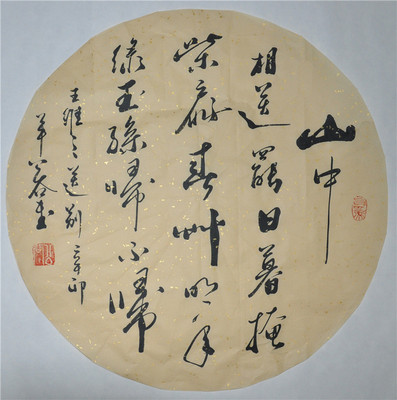 山中
相送罷日暮掩
柴扉春艸明年
綠王孫歸不歸
王維之送别辛卯
年春書